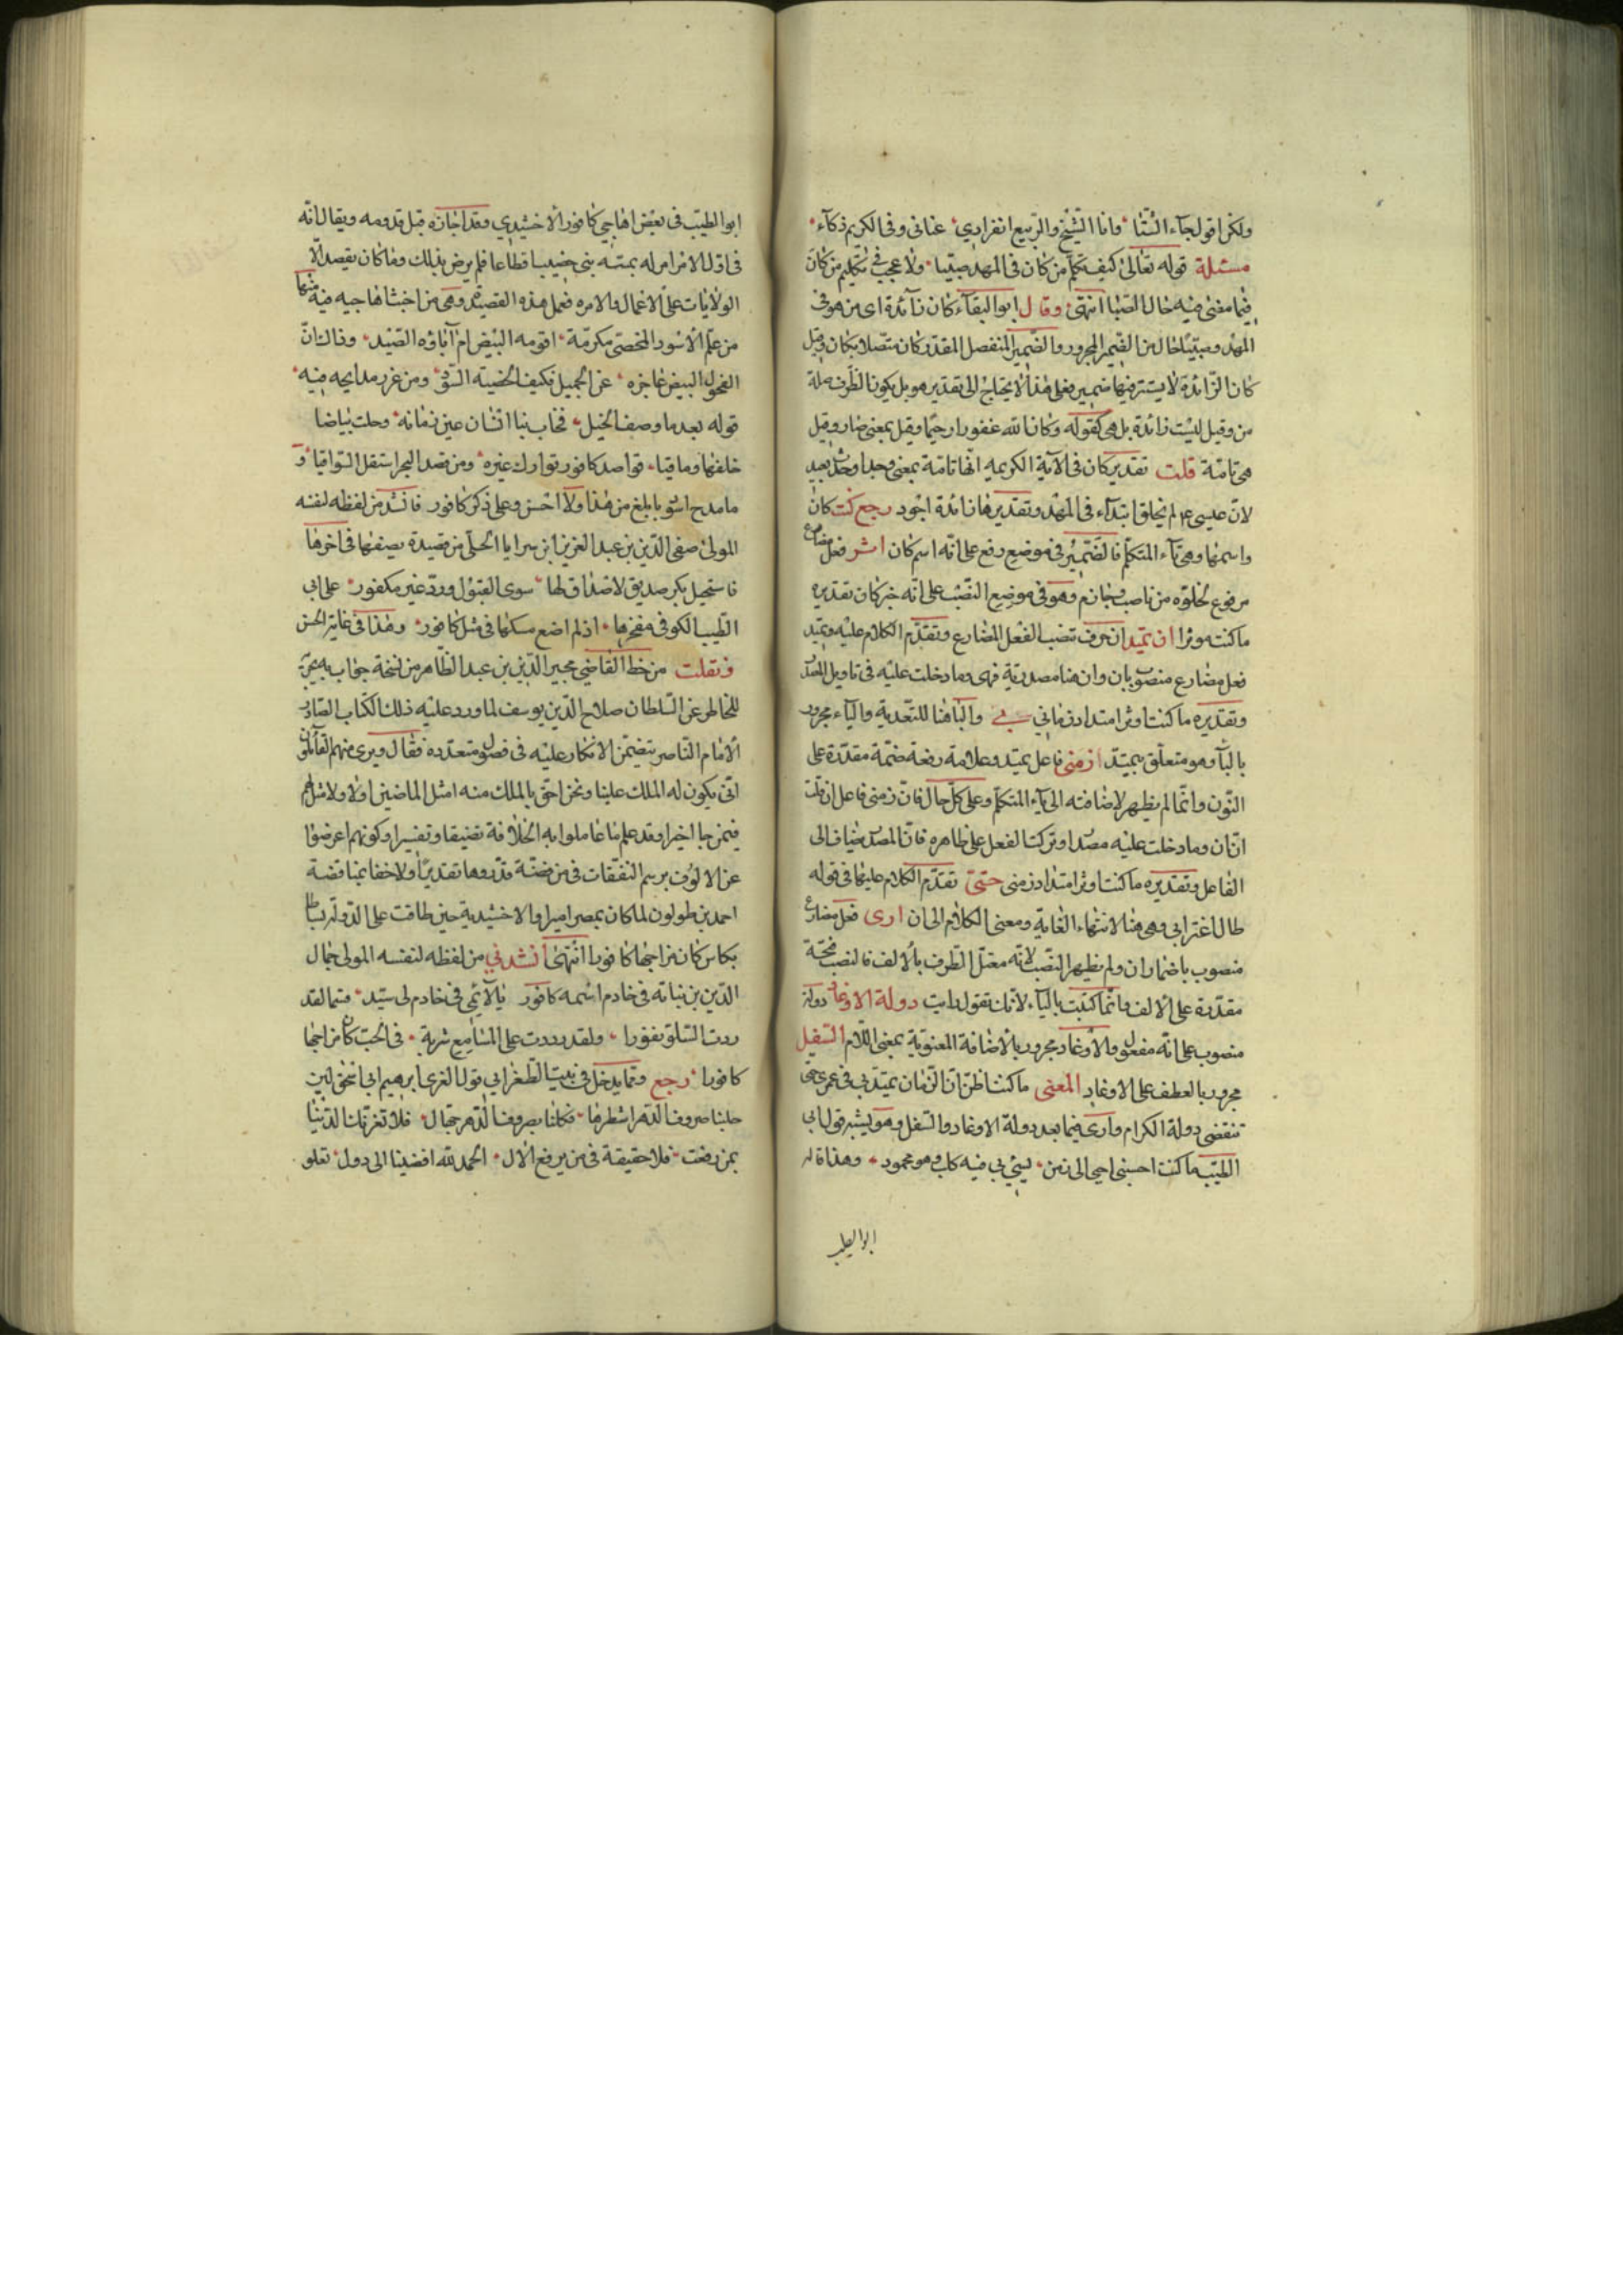 ولكن اقول جآء الشتا وانا الشيخ والربيع انفرادي عنانى وفى الكريم ذكآء
مسئلة قوله تعالى كيف نكلم من كان فى المهد صبيا ولا عجب فى تكليم من كان
فيما مضى فيه حال الصبا انتهى وقال ابو البقآء كان زآئدة اى من هو فى
المهد وصبيا حال من الضمير المجرور والضمير المنفصل المقدر كان متصلا بكان وقيل
كان الزائدة لا يستتر فيها ضمير فعلى هذا لا يحتاج الى تقدير هو بل يكون الظرف صلة
من وقيل ليست زائدة بل هى كقوله وكان الله غفورا رحيما وقيل بمعنى صار وقيل
هى تامة قلت تقدير كان فى الآية الكريمه انها تامة بمعنى وجد او حدث بعيد
لان عيسى عم لم يخلق ابتدآء فى المهد وتقديرها زائدة اجود رجع كنت كان
واسمها وهى تآء المتكلم فالضمير فى موضع رفع على انه اسم كان اوثر فعل مضارع
مرفوع لخلوه من ناصب وجازم وهو فى موضع النصب على انه خبر كان تقديره
ما كنت موثرا ان يمتد ان حرف تنصب الفعل المضارع وتقدم الكلام عليه ويمتد
فعل مضارع منصوب بان وان هنا مصدرية فهى وما دخلت عليه فى تاويل المصدر
وتقديره ما كنت اوثر امتداد زمانى بي والبا هنا للتعدية والياء مجرور
بالبآ وهو متعلق بيمتد زمنى فاعل يمتد وعلامة رفعه ضمة مقدرة على
النون وانما لم يظهر لاضافته الى يآء المتكلم وعلى كل حال فان زمنى فاعل ان قلت
ان ان وما دخلت عليه مصدر او تركت الفعل على ظاهره فان المصدر مضاف الى
الفاعل وتقديره ما كنت اوثر امتداد زمنى حتى تقدم الكلام عليها فى قوله
طال اغترابى وهى هنا لانتهاء الغاية ومعنى الكلام الى ان ارى فعل مضارع
منصوب باضمار ان ولم يظهر النصب لانه معتل الطرف بالالف فالنصب فتحة
مقدرة على الالف وانما كتبت باليآء لانك تقول رايت دولة الاوغاد دولة
منصوب على انه مفعول والاوغاد مجرور بالاضافة المعنوية بمعنى اللام السفل
مجرور بالعطف على الاوغاد المعنى ما كنت اظن ان الزمان يمتد بى فى عمرى حتى
تنقضى دولة الكرام وارى فيما بعد دولة الاوغاد والسفل وهو يشبه قول ابى
الطيب ما كنت احسبنى احيى الى زمن يسئ بى فيه كلب وهو محمود وهذا قاله
ابو الطيب
ابو الطيب فى بعض اهاجي كافور الاخشيدي وقد اجازه قبل قدومه ويقال انه
فى اول الامر امر له بمته بنى خصيبا قطاعا فلم يرض بذلك وما كان يقصد الا
الولايات على الاعمال والامره فعمل هذه القصيدة وهى من اخبث اهاجيه فيه منها
من علم الاسود المخصى مكرمة اقومه البيض ام آباؤه الصيد وذاك ان
الفحول البيض عاجزه عن الجميل فكيف الخصية السود ومن غرر مدايحه فيه
قوله بعد ما وصف الخيل فجاءت بنا انسان عين زمانه وخلت بياضا
خلفها وماقيا قواصد كافور توارك غيره ومن قصد البحر استقل السواقيا و
ما مدح اسود بابلغ من هذا ولا احسن وعلى ذكر كافور فانشد من لفظه لنفسه
المولى صفى الدين بن عبد العزيز ابن سرايا الحلى من قصيدة يصفها فى اخرها
فاستجل بكر صديق لا صداق لها سوى القبول وود غير مكفور على ابى
الطيب الكوفى مفخرها اذ لم اضع مسكها فى مثل كافور وهذا فى غاية الحسن
ونقلت من خط القاضي محيي الدين بن عبد الظاهر من نسخة جواب
للخاطر عن السلطان صلاح الدين يوسف لما ورد عليه ذلك الكتاب الصادر
الامام الناصر يتضمن الانكار عليه فى فصول متعدده فقال ويرى منهم القائلون
انى يكون له الملك علينا ونحن احق بالملك منه امثل الماضين اولا ولا مثلهم
فيمن جا اخيرا وقد علم ما عاملوا به الخلافة تضييقا وتقتيرا وكونهم اعرضوا
عن الالوف برسم النفقات فى من فضة قدروها تقديرا ولا خفا بمناقضة
احمد بن طولون لما كان بمصر اميرا والاخشيدية حين طافت على الدولة
بكاس كان مزاجها كافورا انتهى انشدني من لفظه لنفسه المولى جمال
الدين بن نباته فى خادم اسمه كافور يا لائمي فى خادم لى سيد قسما لقد
زدت السلو نفورا ولقد ادرت على المسامع شربة فى الحب كان مزاجها
كافورا رجع ومما يدخل فى بيت الطغرابي قول الغزى ابرهيم ابى اسحق
حلبنا صروف الدهر اشطرها فكلنا بصروف الدهر جهال فلا تغرنك الدنيا
بمن رفعت فلا حقيقة فى من يرفع الآل الحمد لله افضينا الى دول تعلو